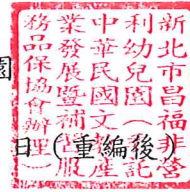 新北市昌福非營
利幼兒園（委託
中華民國文教產
業發展暨補習服
務品保協會辦理）
園
日（重編後）